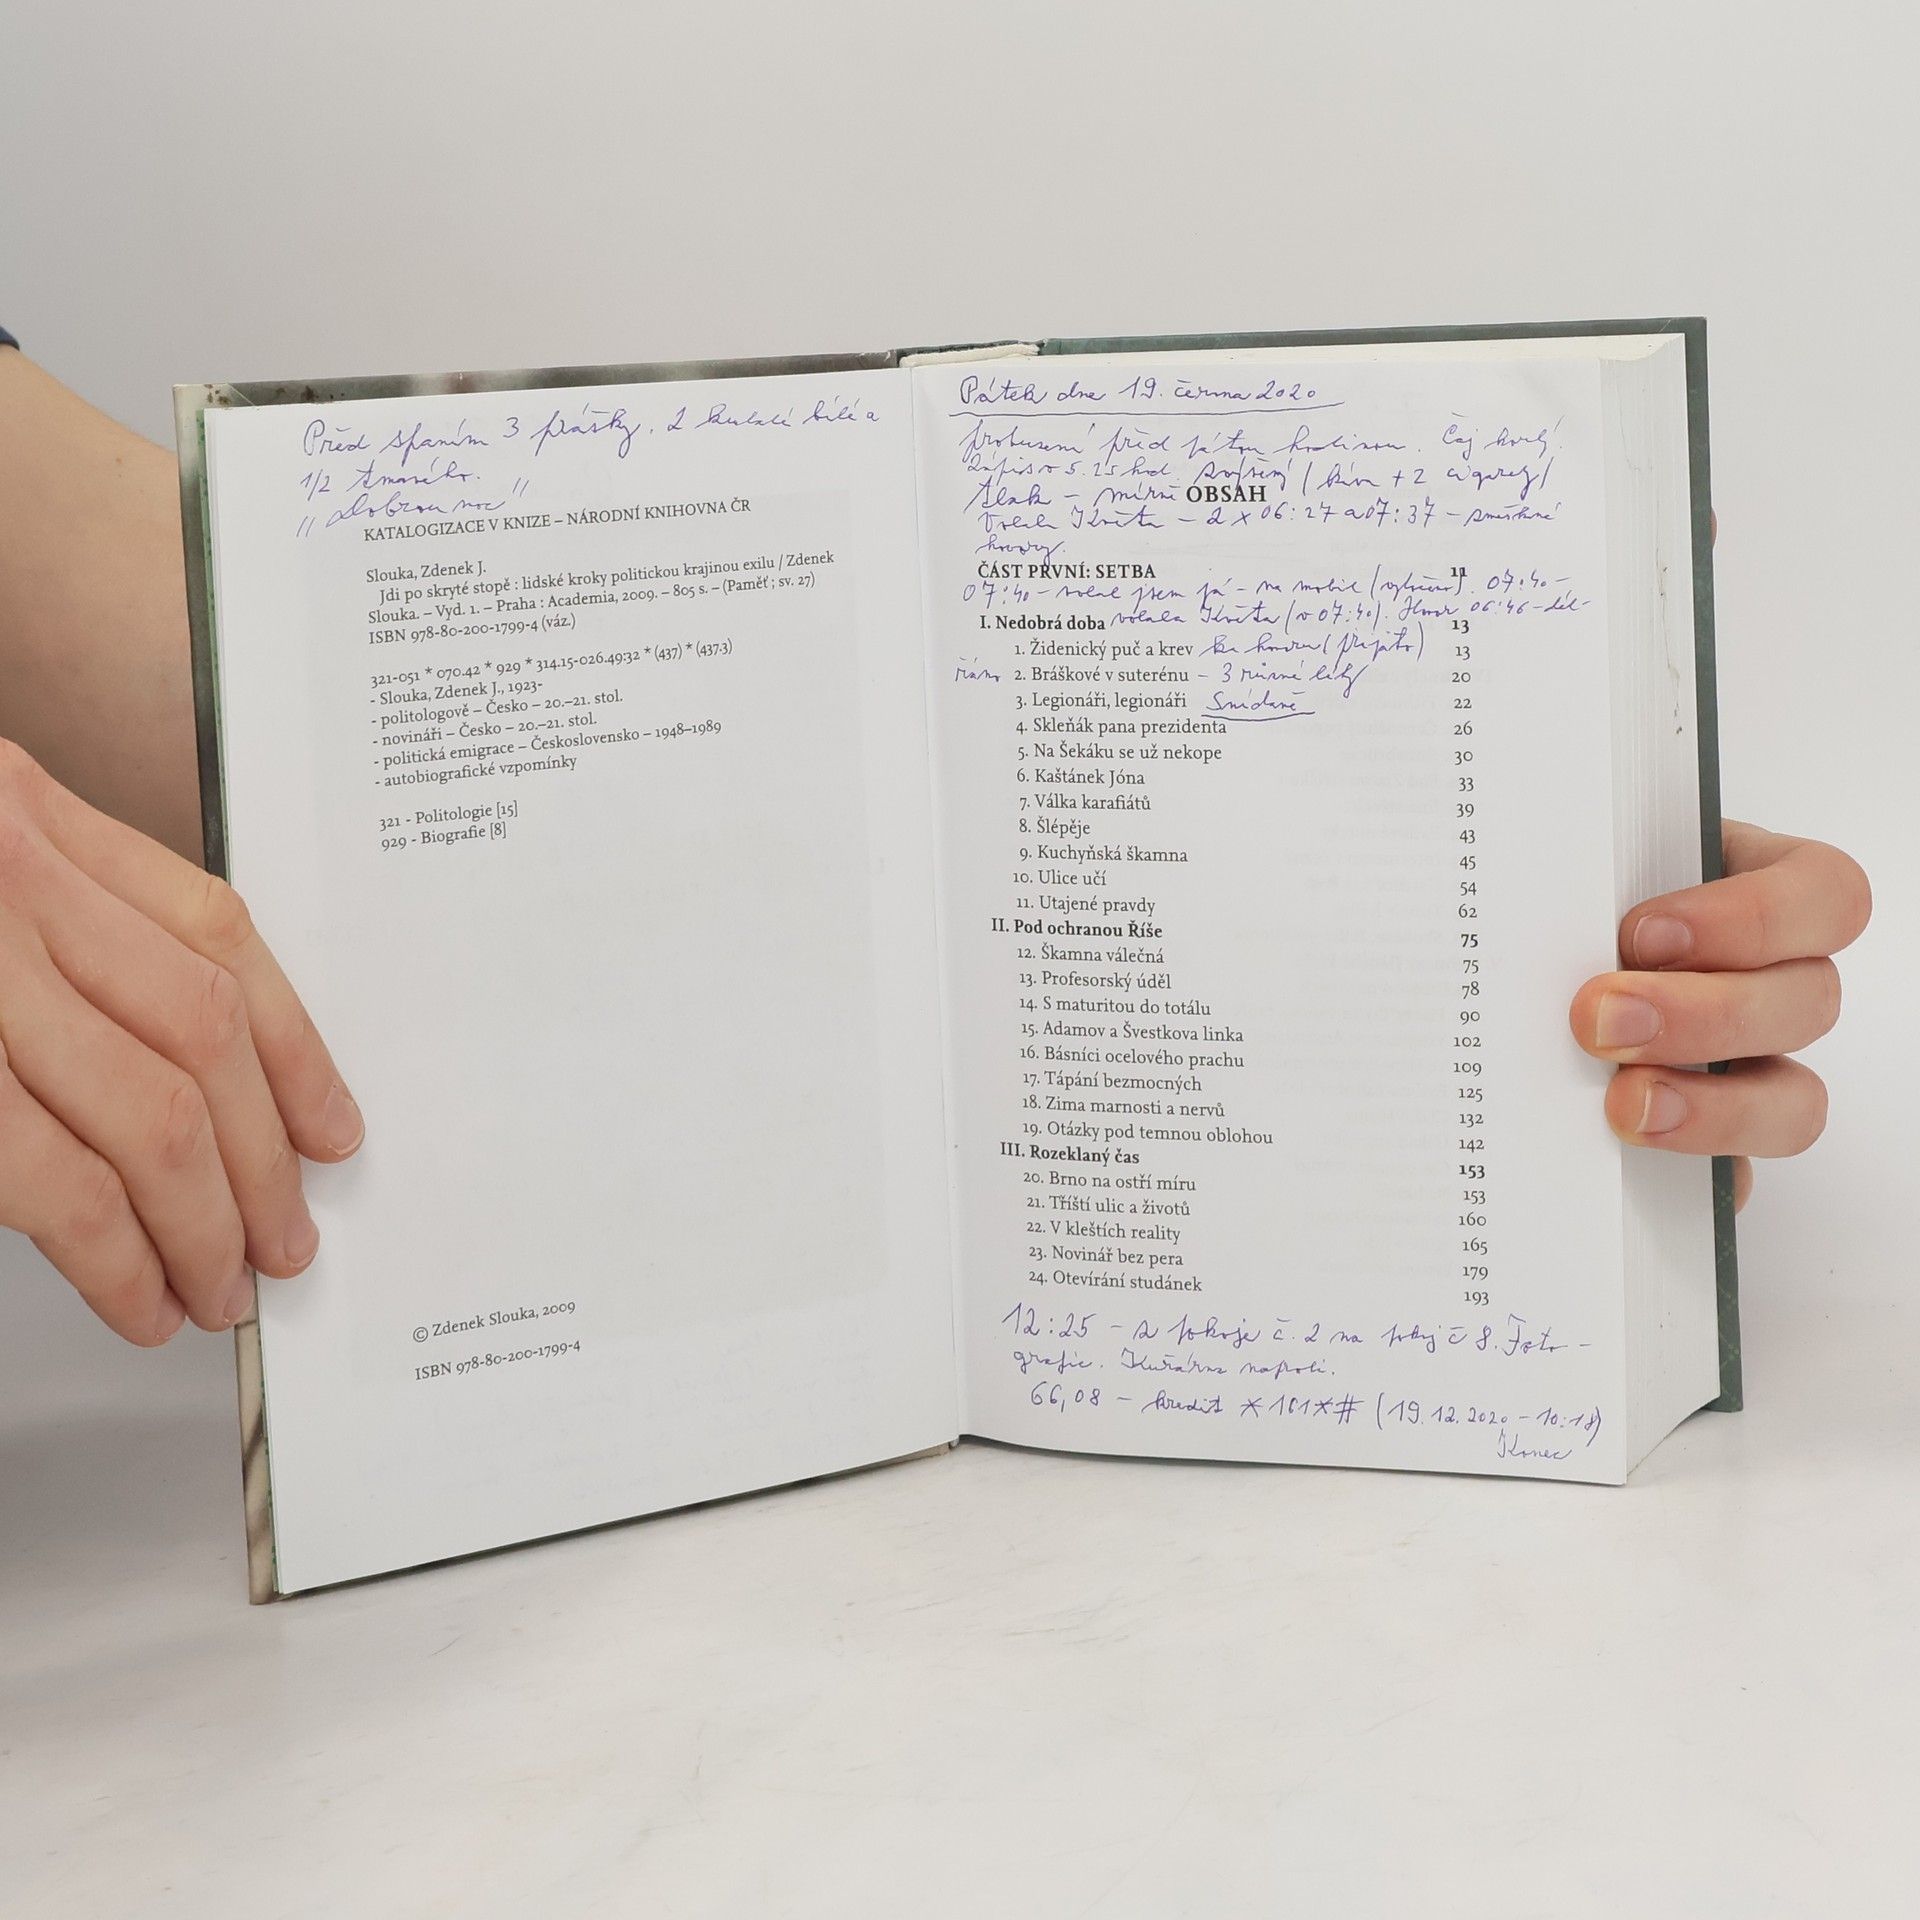 Před spaním 3 prášky. 2 kulaté bílé a
1/2 tmavého.
"Dobrou noc"
KATALOGIZACE V KNIZE – NÁRODNÍ KNIHOVNA ČR
Slouka, Zdenek J.
Jdi po skryté stopě : lidské kroky politickou krajinou exilu / Zdenek
Slouka. – Vyd. 1. – Praha : Academia, 2009. – 805 s. – (Paměť ; sv. 27)
ISBN 978-80-200-1799-4 (váz.)
321-051 * 070.42 * 929 * 314.15-026.49:32 * (437) * (437.3)
- Slouka, Zdenek J., 1923-
- politologové – Česko – 20.–21. stol.
- novináři – Česko – 20.–21. stol.
- politická emigrace – Československo – 1948–1989
- autobiografické vzpomínky
321 - Politologie [15]
929 - Biografie [8]
© Zdenek Slouka, 2009
ISBN 978-80-200-1799-4
Pátek dne 19. června 2020
probuzení před pátou hodinou. Čaj
Zápis v 5.25 hod. (káva + 2 cigarety)
Tlak – mírně
OBSAH
Volala Květa – 2 x 06:27 a 07:37 – zmeškané
hovory.
ČÁST PRVNÍ: SETBA 11
07:40 – volal jsem já – na mobil 07:40 –
volala Květa (v 07:40). Hovor 06:46
I. Nedobrá doba 13
1. Židenický puč a krev 13
2. Bráškové v suterénu 20
– 3 různé léky
3. Legionáři, legionáři 22
Snídaně
4. Skleňák pana prezidenta 26
5. Na Šekáku se už nekope 30
6. Kaštánek Jóna 33
7. Válka karafiátů 39
8. Šlépěje 43
9. Kuchyňská škamna 45
10. Ulice učí 54
11. Utajené pravdy 62
II. Pod ochranou Říše 75
12. Škamna válečná 75
13. Profesorský úděl 78
14. S maturitou do totálu 90
15. Adamov a Švestkova linka 102
16. Básníci ocelového prachu 109
17. Tápání bezmocných 125
18. Zima marnosti a nervů 132
19. Otázky pod temnou oblohou 142
III. Rozeklaný čas 153
20. Brno na ostří míru 153
21. Tříští ulic a životů 160
22. V kleštích reality 165
23. Novinář bez pera 179
24. Otevírání studánek 193
12:25 – z pokoje č. 2 na pokoj č 8. Foto-
grafie. Kuřárna naproti.
66,08 – kredit *101*# (19.12.2020 – 10:18)
Konec